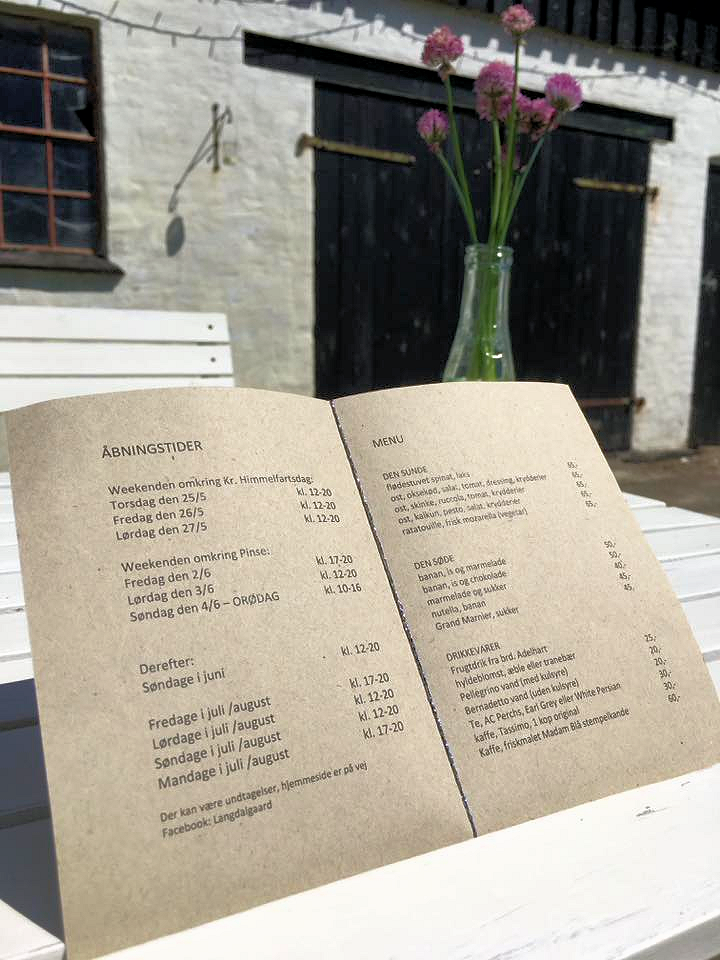 ÅBNINGSTIDER
Weekenden omkring Kr. Himmelfartsdag:
Torsdag den 25/5 kl. 12-20
Fredag den 26/5 kl. 12-20
Lørdag den 27/5 kl. 12-20
Weekenden omkring Pinse:
Fredag den 2/6 kl. 17-20
Lørdag den 3/6 kl. 12-20
Søndag den 4/6 – ORØDAG kl. 10-16
Derefter:
Søndage i juni kl. 12-20
Fredage i juli /august kl. 17-20
Lørdage i juli /august kl. 12-20
Søndage i juli /august kl. 12-20
Mandage i juli /august kl. 17-20
Der kan være undtagelser, hjemmeside er på vej
Facebook: Langdalgaard
MENU
DEN SUNDE
flødestuvet spinat, laks 65,-
ost, oksekød, salat, tomat, dressing, krydderier 65,-
ost, skinke, ruccola, tomat, krydderier 65,-
ost, kalkun, pesto, salat, krydderier 65,-
ratatouille, frisk mozarella (vegetar) 65,-
DEN SØDE
banan, is og marmelade 50,-
banan, is og chokolade 50,-
marmelade og sukker 40,-
nutella, banan 45,-
Grand Marnier, sukker 45,
DRIKKEVARER
Frugtdrik fra brd. Adelhart
hyldeblomst, æble eller tranebær 25,-
Pellegrino vand (med kulsyre) 20,-
Bernadetto vand (uden kulsyre) 20,-
Te, AC Perchs, Earl Grey eller White Persian 30,-
kaffe, Tassimo, 1 kop original 30,-
Kaffe, friskmalet Madam Blå stempelkande 60,-